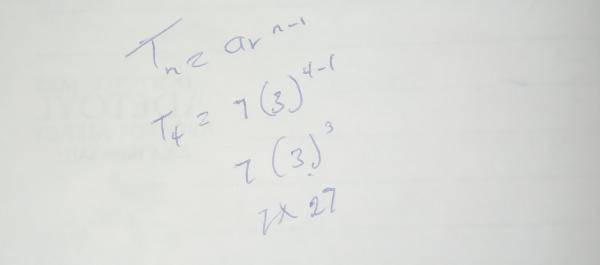 Tₙ = arⁿ⁻¹
T₄ = 7(3)⁴⁻¹
7(3)³
7 x 27